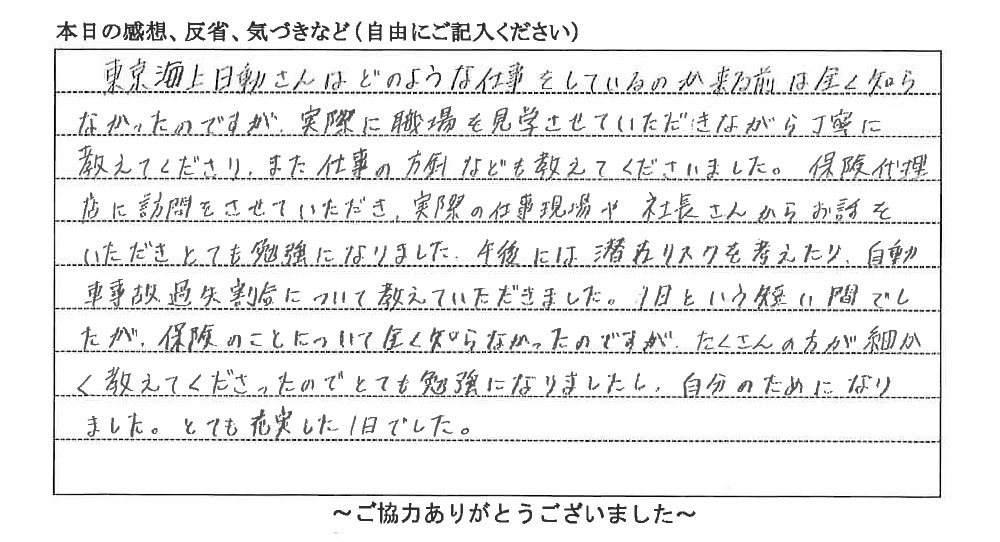 本日の感想、反省、気づきなど(自由にご記入ください)
東京海上日動さんはどのような仕事をしているのか来る前は全く知ら
なかったのですが、実際に職場を見学させていただきながら丁寧に
教えてくださり、また仕事の方針なども教えてくださいました。保険代理
店に訪問をさせていただき、実際の仕事現場や社長さんからお話を
いただきとても勉強になりました。午後には潜在リスクを考えたり、自動
車事故過失割合について教えていただきました。1日という短い間でし
たが、保険のことについて全く知らなかったのですが、たくさんの方が細か
く教えてくださったのでとても勉強になりましたし、自分のためになり
ました。とても充実した1日でした。
~ご協力ありがとうございました~